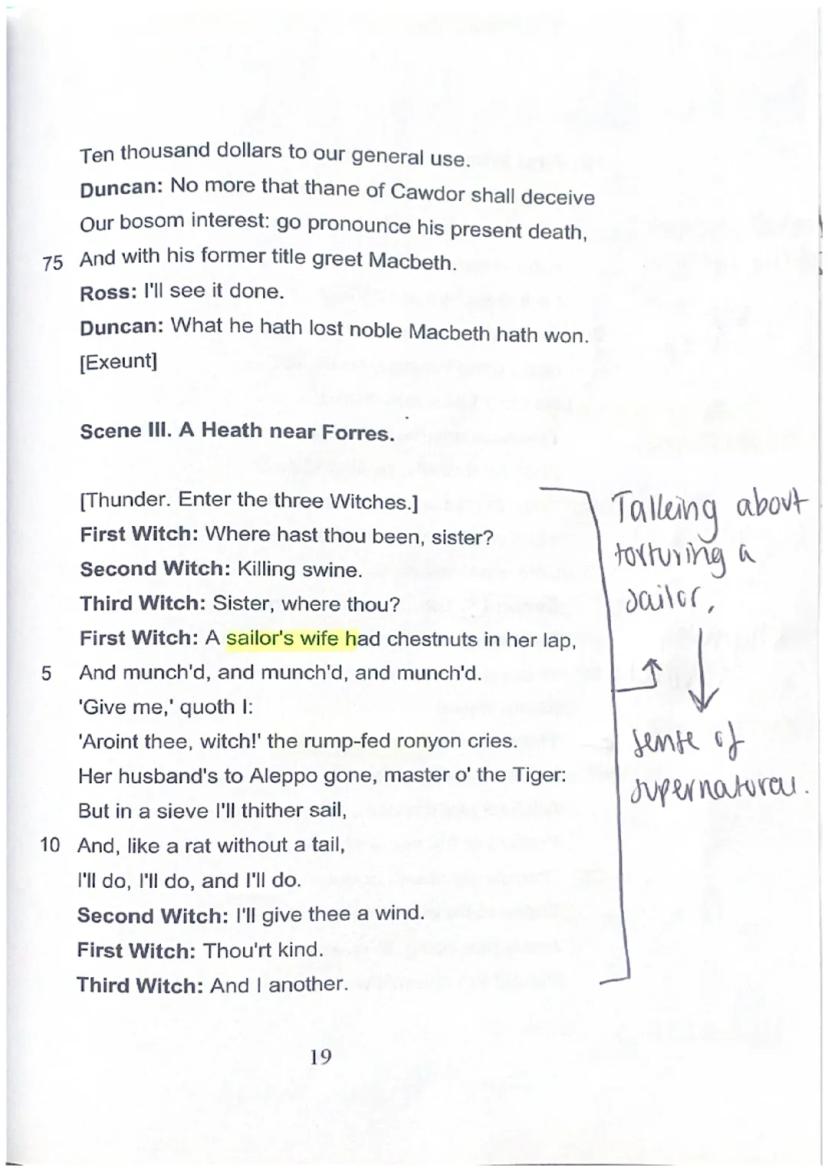 Ten thousand dollars to our general use.
Duncan: No more that thane of Cawdor shall deceive
Our bosom interest: go pronounce his present death,
75 And with his former title greet Macbeth.
Ross: I'll see it done.
Duncan: What he hath lost noble Macbeth hath won.
[Exeunt]
Scene III. A Heath near Forres.
[Thunder. Enter the three Witches.]
First Witch: Where hast thou been, sister?
Second Witch: Killing swine.
Third Witch: Sister, where thou?
First Witch: A sailor's wife had chestnuts in her lap,
5 And munch'd, and munch'd, and munch'd.
'Give me,' quoth I:
'Aroint thee, witch!' the rump-fed ronyon cries.
Her husband's to Aleppo gone, master o' the Tiger:
But in a sieve I'll thither sail,
10 And, like a rat without a tail,
I'll do, I'll do, and I'll do.
Second Witch: I'll give thee a wind.
First Witch: Thou'rt kind.
Third Witch: And I another.
Talking about
torturing a
sailor,
sense of
supernatural.
19